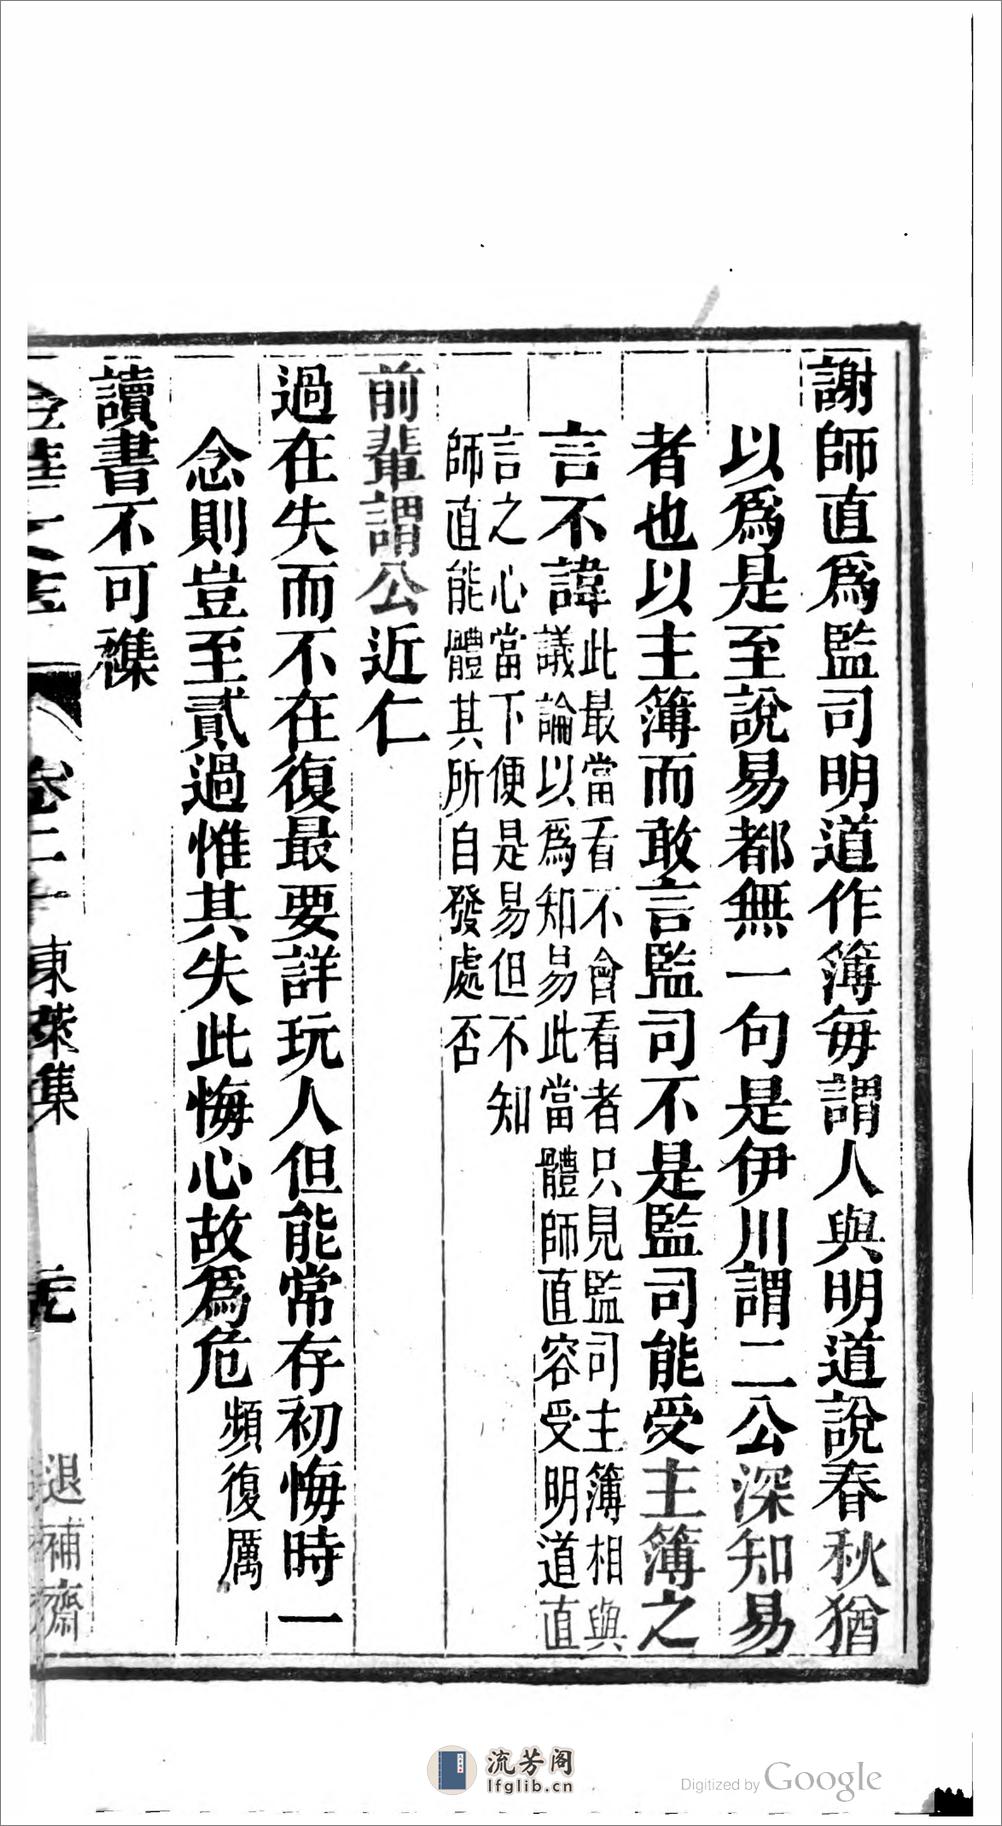 謝師直爲監司明道作簿每謂人與明道說春秋猶
以爲是至說易都無一句是伊川謂二公深知易
者也以主簿而敢言監司不是監司能受主簿之
言不諱此最當看不會看者只見監司主簿相與
議論以爲知易此當體師直容受明道直
言之心當下便是易但不知
師直能體其所自發處否
前輩謂公近仁
過在失而不在復最要詳玩人但能常存初悔時一
念則豈至貳過惟其失此悔心故爲危頻復厲
讀書不可雜
卷二十
東萊集
退補齋
流芳阁
lfglib.cn
Digitized by Google